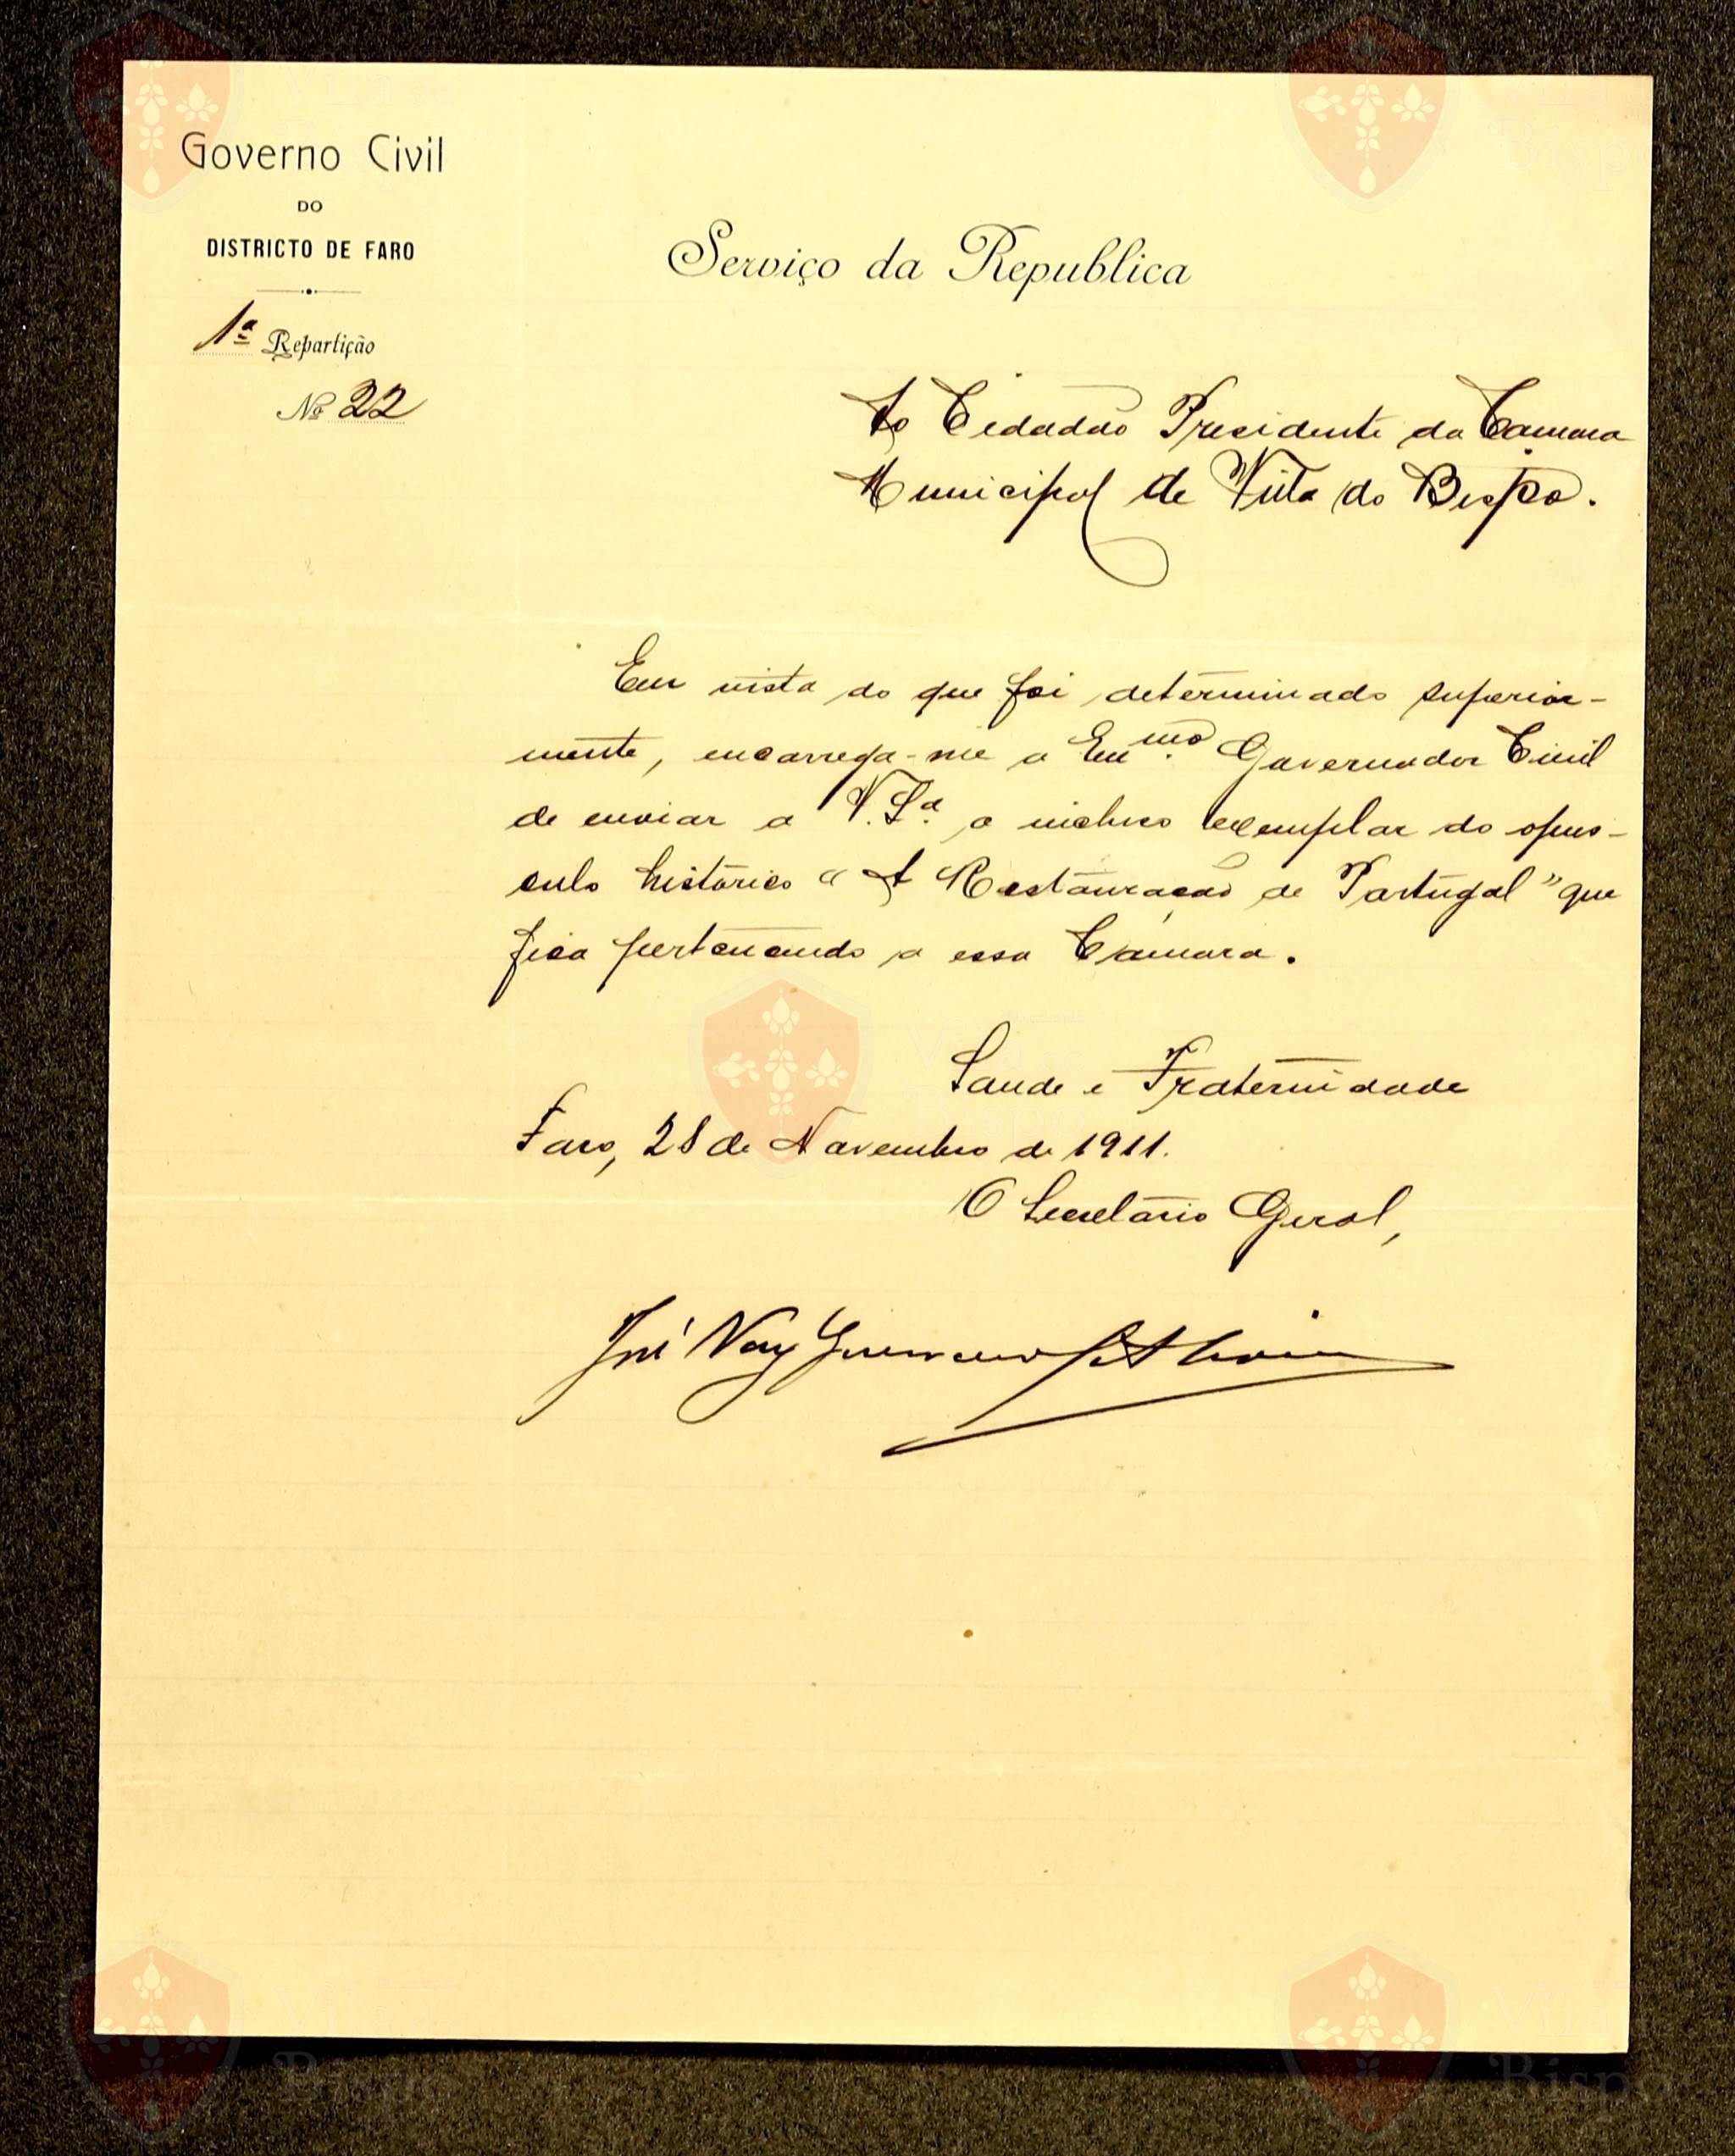 Governo Civil
DO
DISTRICTO DE FARO
1ª Repartição
Nº 22
Serviço da Republica
Ao Cidadão Presidente da Camara
Municipal de Villa do Bispo.
Em vista do que foi determinado superior-
mente, encarrega-me o Exmo. Governador Civil
de enviar a V. Sª. o incluso exemplar do opus-
culo historico "A Restauração de Portugal" que
fica pertencendo a essa Camara.
Saude e Fraternidade
Faro, 28 de Novembro de 1911.
O Secretario Geral,
José Vaz Guerreiro
Bispo